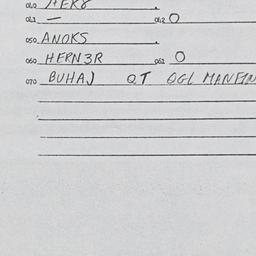 040 HER8
041 — 042 O
050 ANOKS
060 HERN3R 061 O
070 BUHAJ QT QGL MANFIN